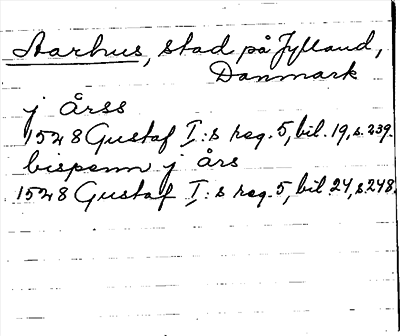 Aarhus, stad på Jylland,
Danmark
j Årss
1528 Gustaf I:s reg. 5, bil. 19, s. 239.
bispenn j års
1528 Gustaf I:s reg. 5, bil. 24, s. 248.